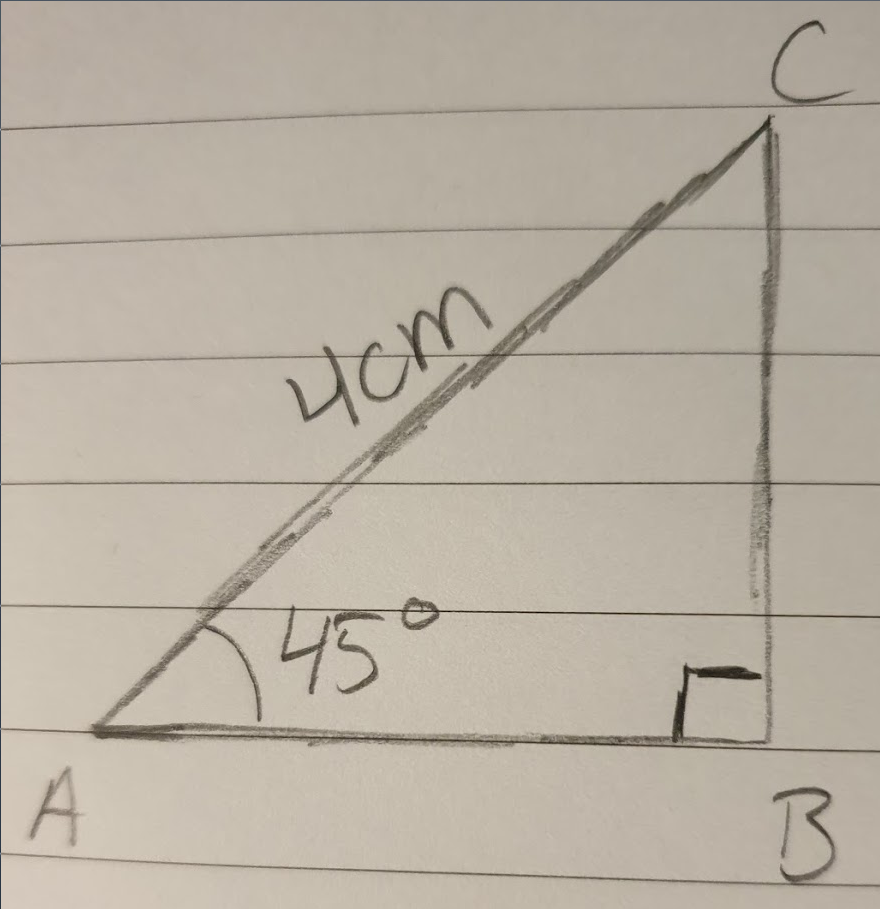 C
4cm
45°
A
B